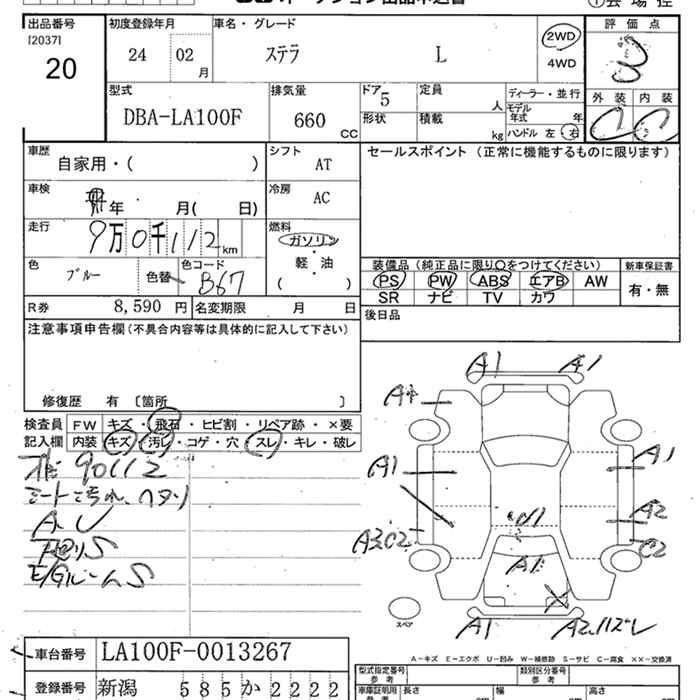 出品番号
初度登録年月
車名・グレード
評価点
[2037]
20
24
02
月
ステラ
L
2WD
4WD
外装 内装
C C
型式
DBA-LA100F
排気量
660
CC
ドア
5
形状
定員
人
積載
kg
ディーラー・並行
モデル年式
年
ハンドル 左 右
車歴
自家用・( )
シフト
AT
セールスポイント(正常に機能するものに限ります)
車検
年 月( 日)
冷房
AC
走行
9万0千112km
燃料
ガソリン
軽・油
( )
色
ブルー
色替
色コード
B67
装備品(純正品に限り○をつけてください)
新車保証書
PS PW ABS エアB AW
SR ナビ TV カワ
有・無
R券
8,590 円
名変期限
月 日
後日品
注意事項申告欄(不具合内容等は具体的に記入して下さい)
修復歴 有 〔箇所 〕
検査員
記入欄
FW
キズ・飛石・ヒビ割・リペア跡・×要
内装
キズ・汚レ・コゲ・穴・スレ・キレ・破レ
90112
シート
A U
下廻りS
E/GルームS
A1
A1
A4
A1
A1
A2
U1
A3C2
C2
A1
スペア
A1
A2
A-キズ E-エクボ U-凹み W-補修跡 S-サビ C-腐食 ××-交換済
車台番号
LA100F-0013267
型式指定番号
参考
類別区分番号
参考
登録番号
新潟 585 か 2222
車庫証明用
参考
長さ
幅
高さ